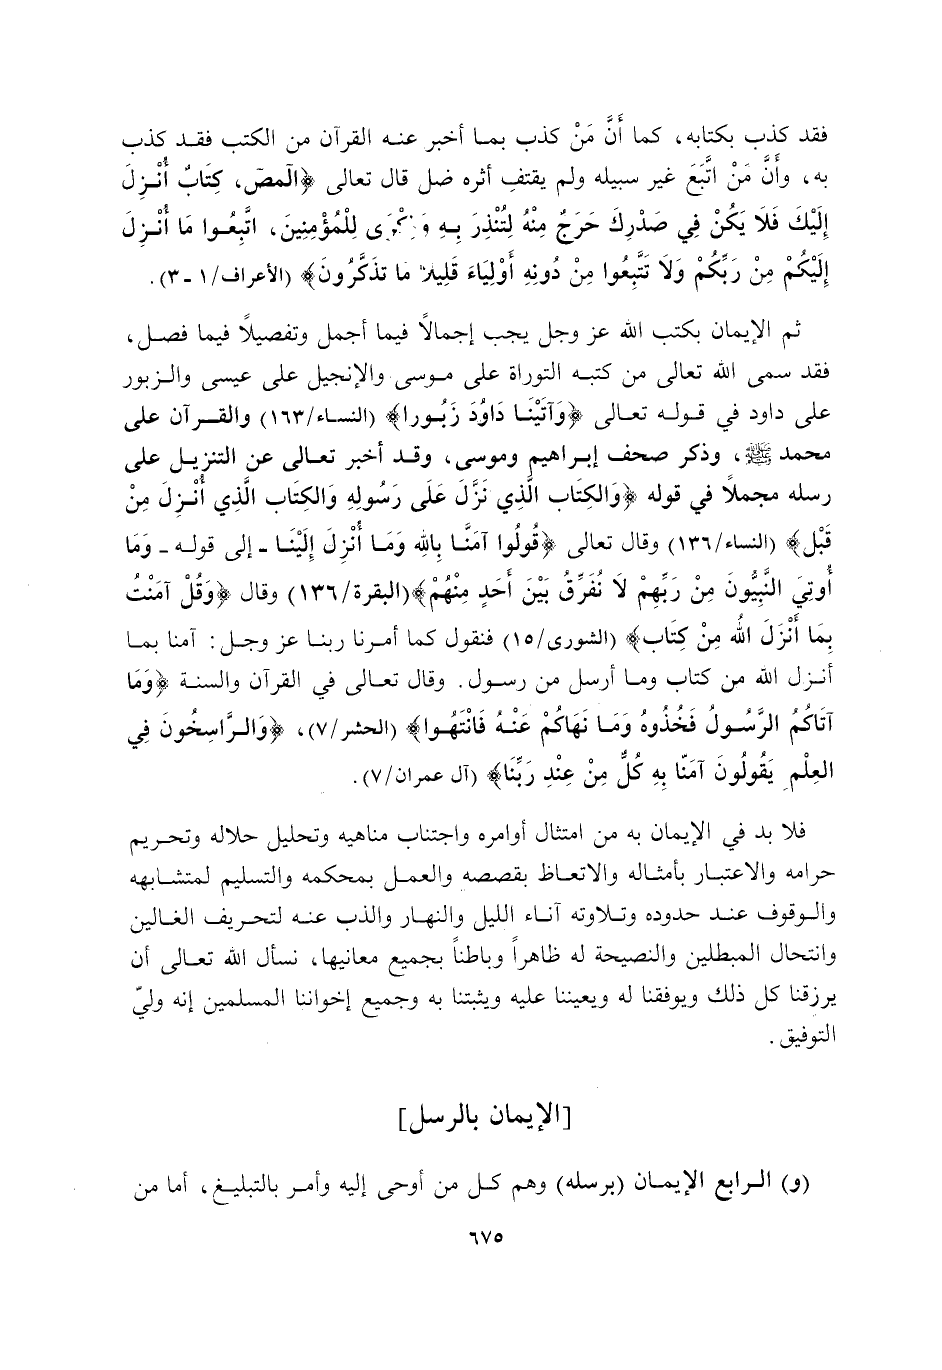 فقد كذب بكتابه، كما أَنَّ مَنْ كذب بما أخبر عنه القرآن من الكتب فقد كذب
به، وأَنَّ مَنْ اتَّبَعَ غير سبيله ولم يقتف أثره ضل قال تعالى ﴿الَمصَ، كِتَابٌ أُنْزِلَ
إِلَيْكَ فَلَا يَكُنْ فِي صَدْرِكَ حَرَجٌ مِنْهُ لِتُنْذِرَ بِهِ وَذِكْرَى لِلْمُؤْمِنِينَ، اتَّبِعُوا مَا أُنْزِلَ
إِلَيْكُمْ مِنْ رَبِّكُمْ وَلَا تَتَّبِعُوا مِنْ دُونِهِ أَوْلِيَاءَ قَلِيلاً مَا تَذَكَّرُونَ﴾ (الأعراف/١ - ٣).
ثم الإيمان بكتب الله عز وجل يجب إجمالاً فيما أجمل وتفصيلاً فيما فصل،
فقد سمى الله تعالى من كتبه التوراة على موسى والإنجيل على عيسى والزبور
على داود في قوله تعالى ﴿وَآتَيْنَا دَاوُدَ زَبُورا﴾ (النساء/١٦٣) والقرآن على
محمد ﷺ، وذكر صحف إبراهيم وموسى، وقد أخبر تعالى عن التنزيل على
رسله مجملاً في قوله ﴿وَالكِتَابِ الَّذِي نَزَّلَ عَلَى رَسُولِهِ وَالكِتَابِ الَّذِي أُنْزِلَ مِنْ
قَبْل﴾ (النساء/١٣٦) وقال تعالى ﴿قُولُوا آمَنَّا بِاللهِ وَمَا أُنْزِلَ إِلَيْنَا - إلى قوله - وَمَا
أُوتِيَ النَّبِيُّونَ مِنْ رَبِّهِمْ لَا نُفَرِّقُ بَيْنَ أَحَدٍ مِنْهُمْ﴾(البقرة/١٣٦) وقال ﴿وَقُلْ آمَنْتُ
بِمَا أَنْزَلَ اللهُ مِنْ كِتَاب﴾ (الشورى/١٥) فنقول كما أمرنا ربنا عز وجل: آمنا بما
أنزل الله من كتاب وما أرسل من رسول. وقال تعالى في القرآن والسنة ﴿وَمَا
آتَاكُمُ الرَّسُولُ فَخُذُوهُ وَمَا نَهَاكُمْ عَنْهُ فَانْتَهُوا﴾ (الحشر/٧)، ﴿وَالرَّاسِخُونَ فِي
العِلْمِ يَقُولُونَ آمَنَّا بِهِ كُلٌّ مِنْ عِنْدِ رَبِّنَا﴾ (آل عمران/٧).
فلا بد في الإيمان به من امتثال أوامره واجتناب مناهيه وتحليل حلاله وتحريم
حرامه والاعتبار بأمثاله والاتعاظ بقصصه والعمل بمحكمه والتسليم لمتشابهه
والوقوف عند حدوده وتلاوته آناء الليل والنهار والذب عنه لتحريف الغالين
وانتحال المبطلين والنصيحة له ظاهراً وباطناً بجميع معانيها، نسأل الله تعالى أن
يرزقنا كل ذلك ويوفقنا له ويعيننا عليه ويثبتنا به وجميع إخواننا المسلمين إنه وليّ
التوفيق.
[الإيمان بالرسل]
(و) الرابع الإيمان (برسله) وهم كل من أوحى إليه وأمر بالتبليغ، أما من
٦٧٥